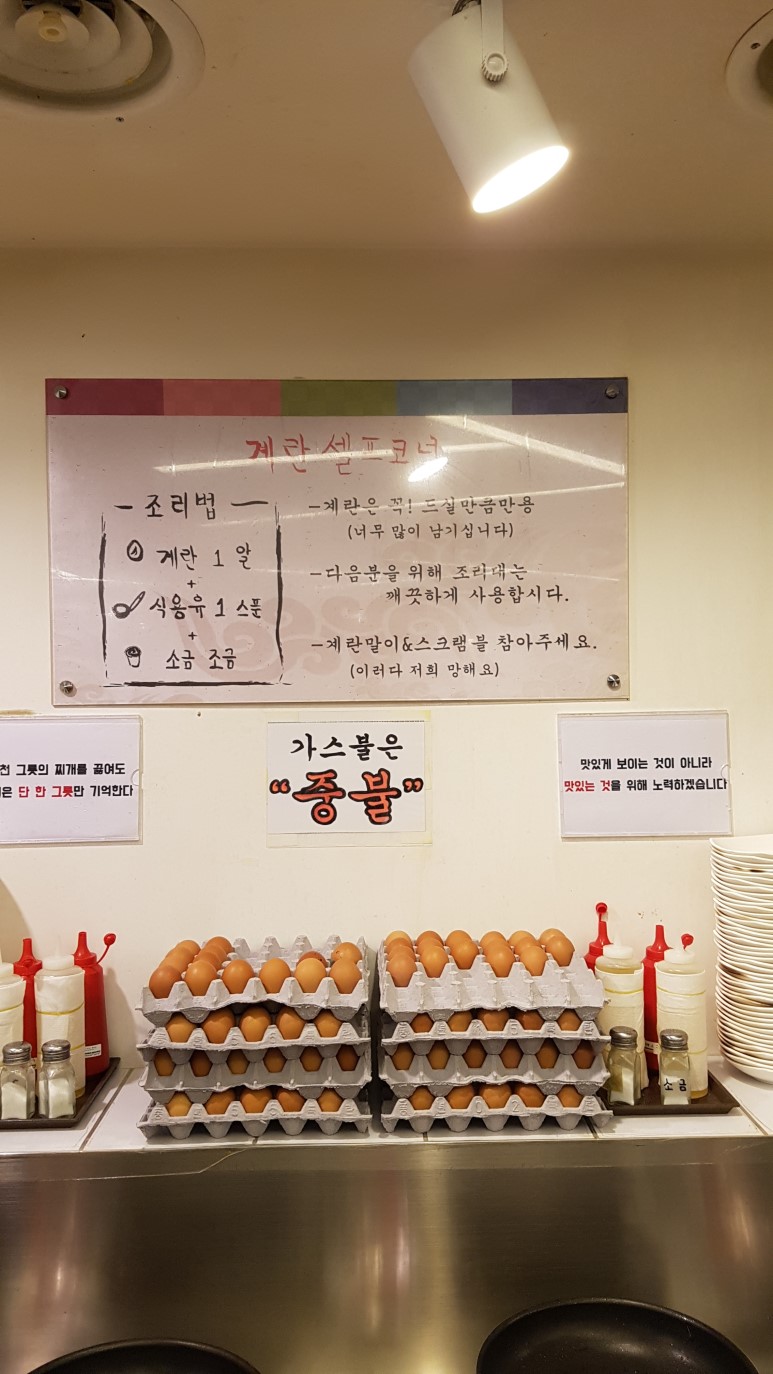 계란 셀프코너
- 조리법 -
계란 1 알
+
식용유 1 스푼
+
소금 조금
- 계란은 꼭! 드실만큼만용
(너무 많이 남기십니다)
- 다음분을 위해 조리대는
깨끗하게 사용합시다.
- 계란말이&스크램블 참아주세요.
(이러다 저희 망해요)
천 그릇의 찌개를 끓여도
은 단 한 그릇만 기억한다
가스불은
“중불”
맛있게 보이는 것이 아니라
맛있는 것을 위해 노력하겠습니다
소금